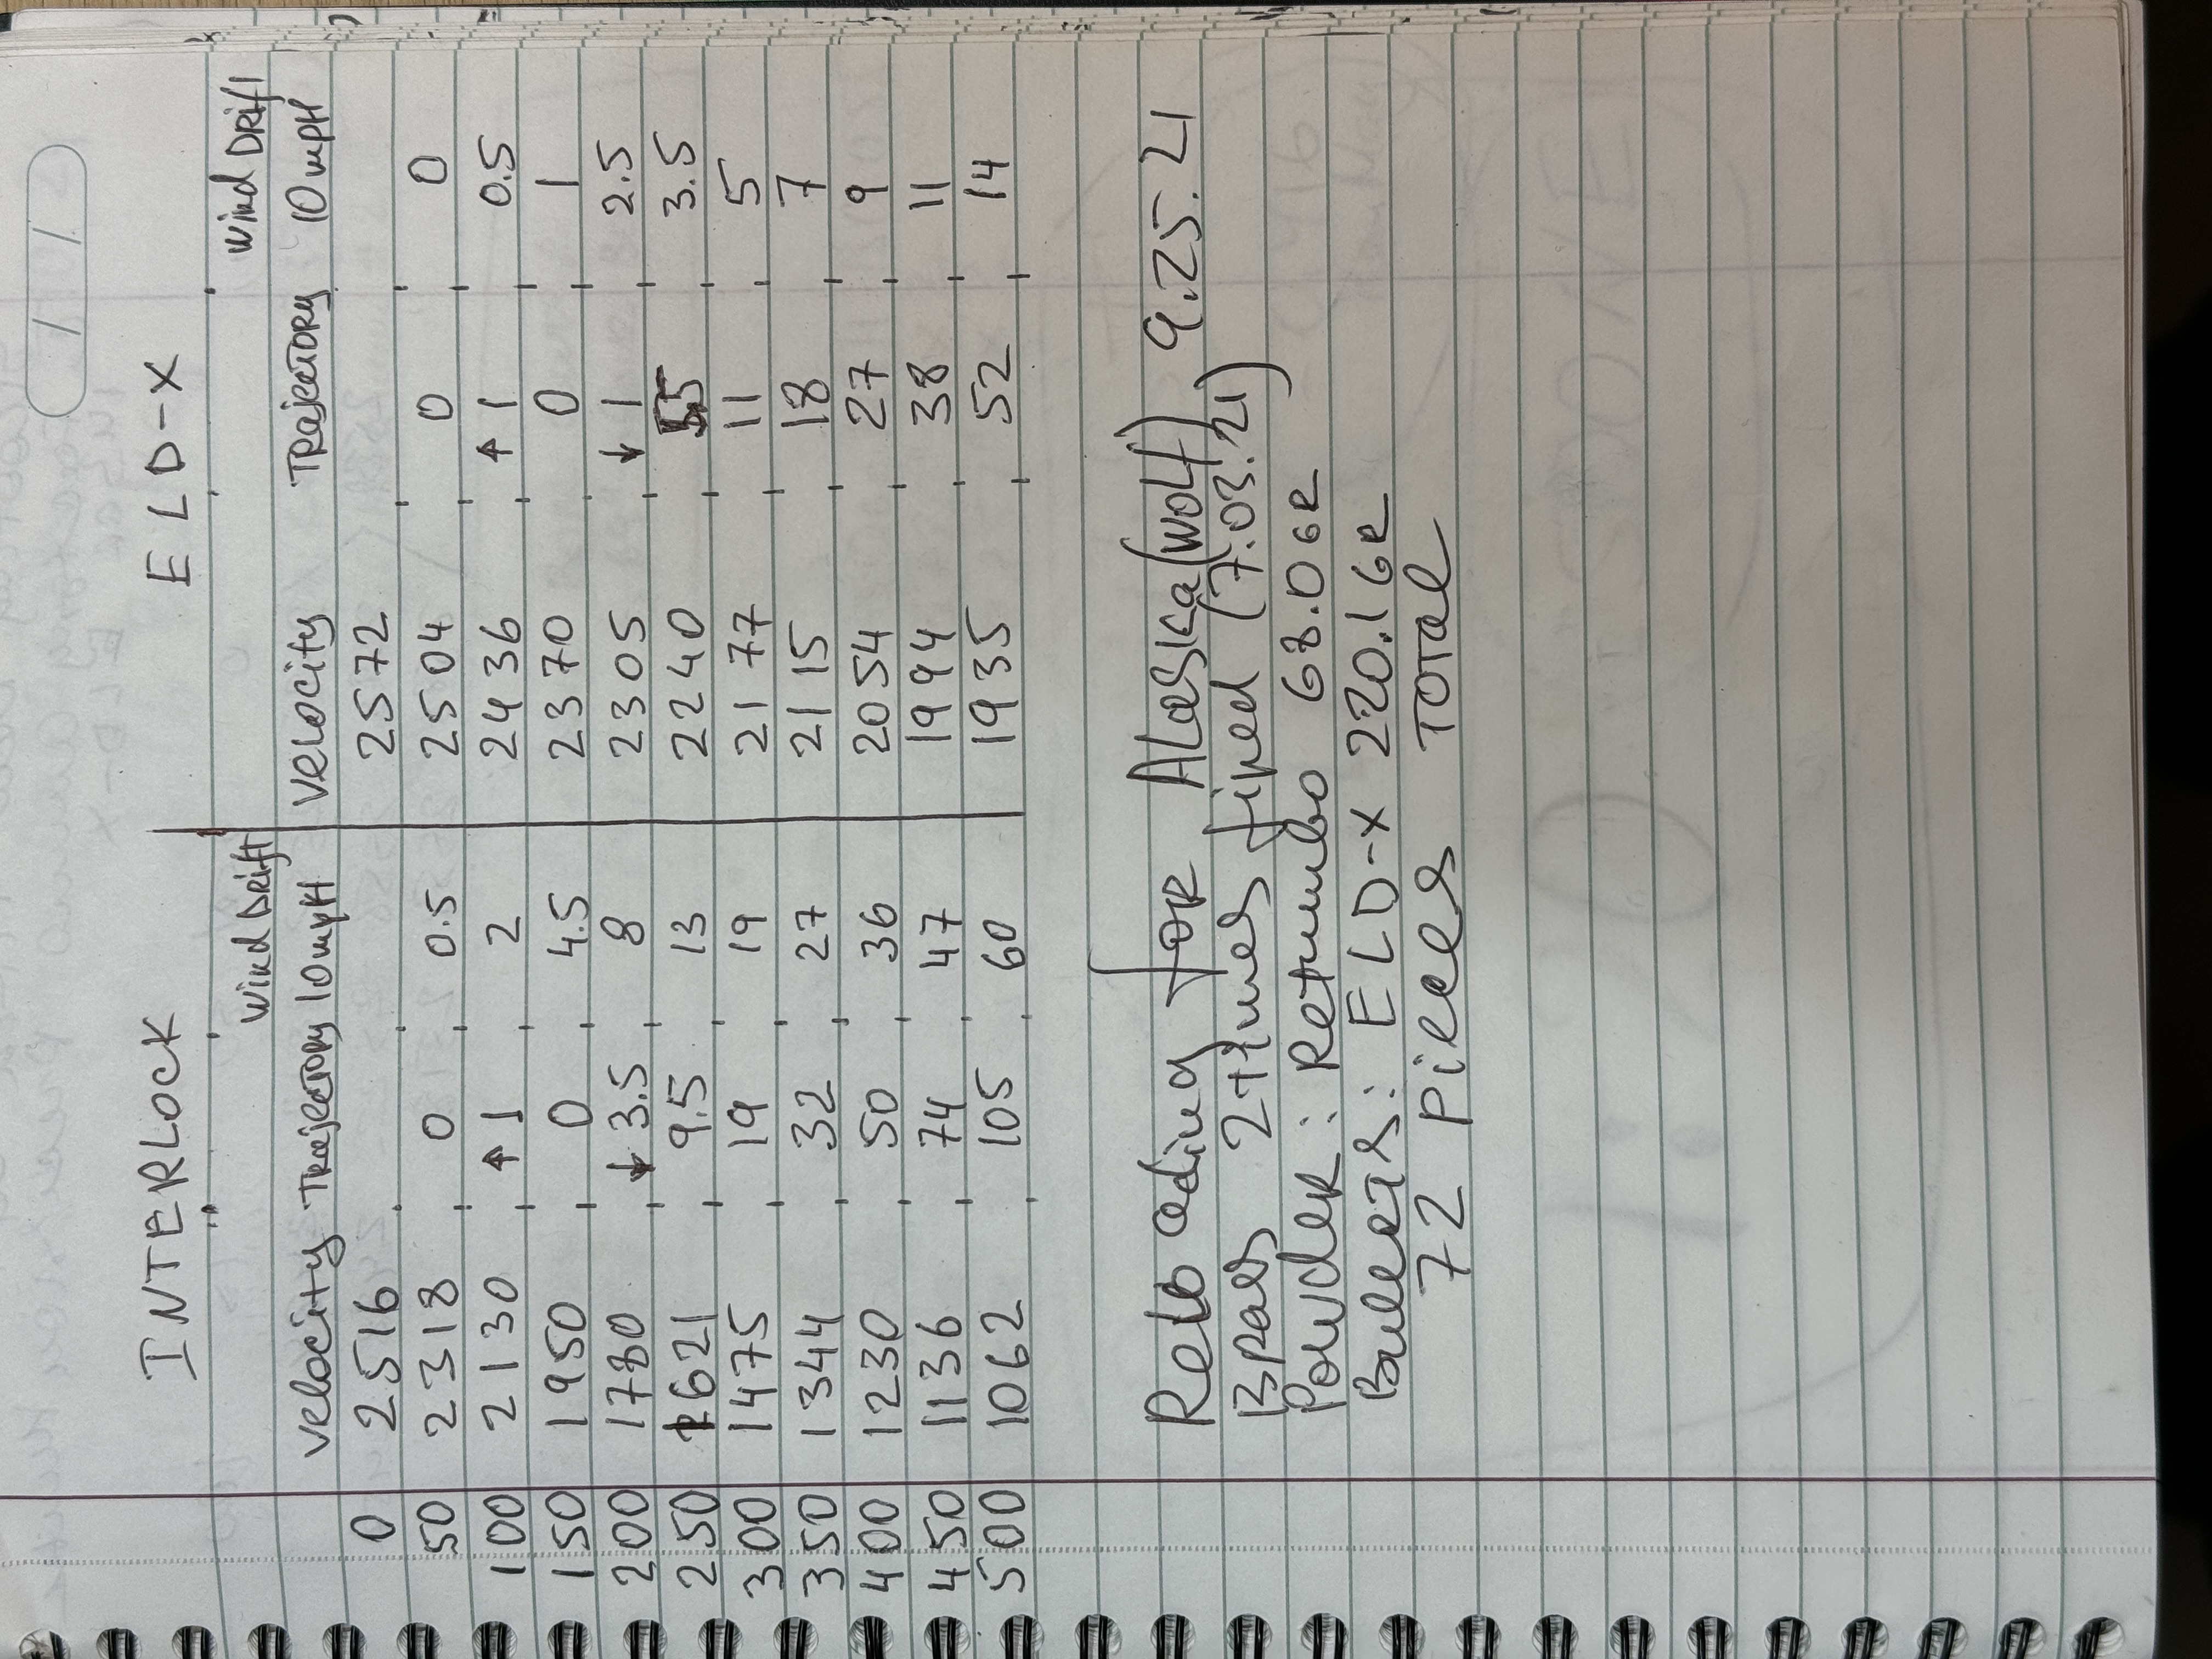 INTERLOCK ELD-X
Wind Drift Wind Drift
Velocity Trajectory 10 mpH Velocity Trajectory 10 mpH
0 2516 2572
50 2318 0 0.5 2504 0 0
100 2130 ↑ 1 2 2436 ↑ 1 0.5
150 1950 0 4.5 2370 0 1
200 1780 ↓ 3.5 8 2305 ↓ 1 2.5
250 1621 9.5 13 2240 5.5 3.5
300 1475 19 19 2177 11 5
350 1344 32 27 2115 18 7
400 1230 50 36 2054 27 9
450 1136 74 47 1994 38 11
500 1062 105 60 1935 52 14
Reloading for Alaska (Wolf) 9.25.21
Bras 2 times fired (7.03.21)
Powder: Retumbo 68.0 GR
Bullets: ELD-X 220.1 GR
72 Pieces Total